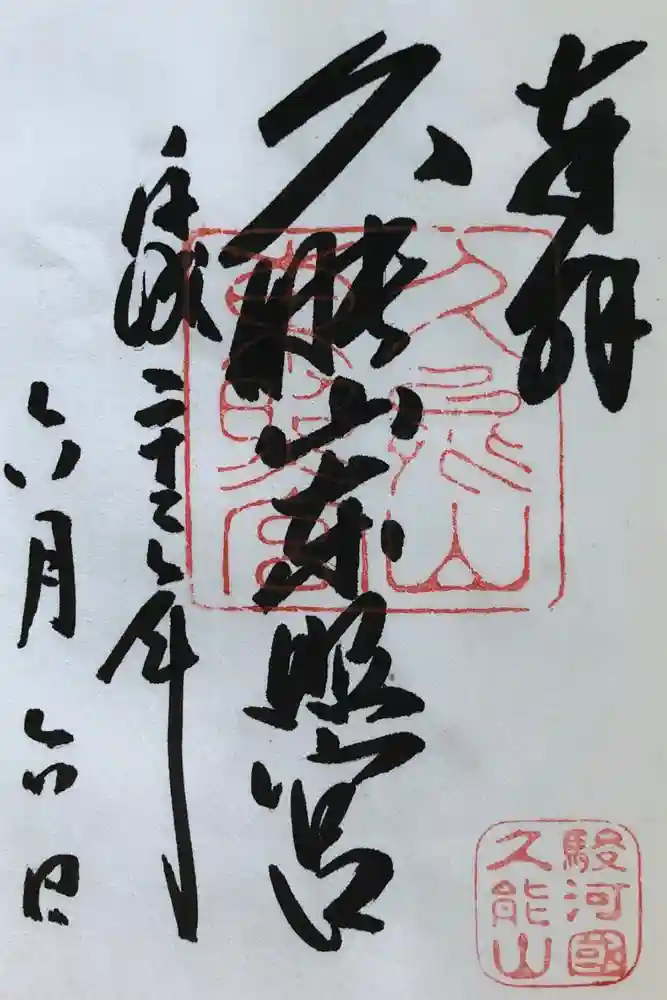 奉拝
久能山東照宮
平成二十三年
六月六日
久能山
東照宮
駿河國
久能山